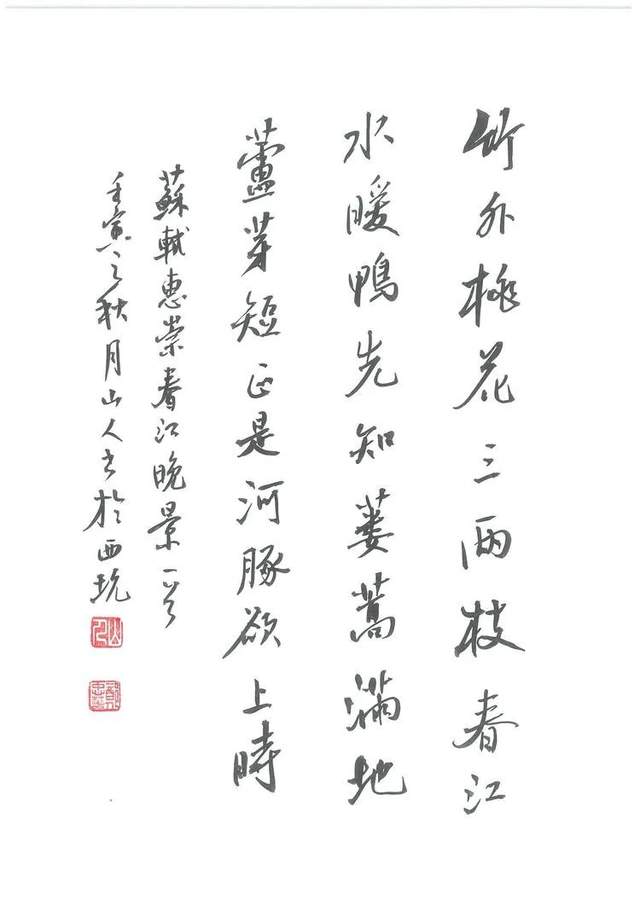 竹外桃花三兩枝春江
水暖鴨先知蔞蒿滿地
蘆芽短正是河豚欲上時
蘇軾惠崇春江晚景一首
壬寅之秋月山人書於西坑